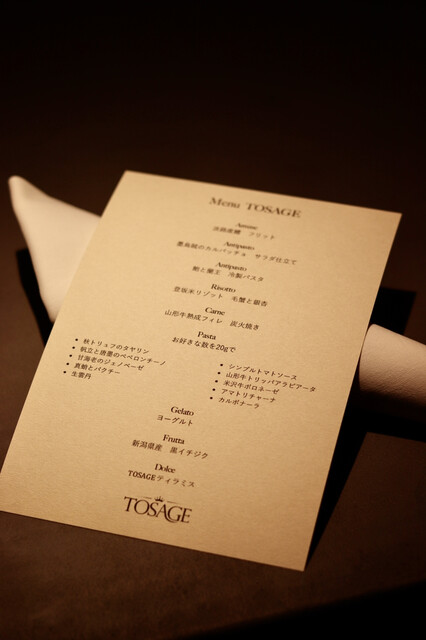 Menu TOSAGE
Amuse
淡路産鱧 フリット
Antipasto
鹿児島鰹のカルパッチョ サラダ仕立て
Antipasto
鮑と蘭王 冷製パスタ
Risotto
雪坂米リゾット 毛蟹と銀杏
Carne
山形牛熟成フィレ 炭火焼き
Pasta
お好きな数を20gで
秋トリュフのタヤリン
帆立と唐墨のペペロンチーノ
甘海老のジェノベーゼ
真蛸とパクチー
生雲丹
シンプルトマトソース
山形牛トリッパアラビアータ
米沢牛ボロネーゼ
アマトリチャーナ
カルボナーラ
Gelato
ヨーグルト
Frutta
新潟県産 黒イチジク
Dolce
TOSAGEティラミス
TOSAGE